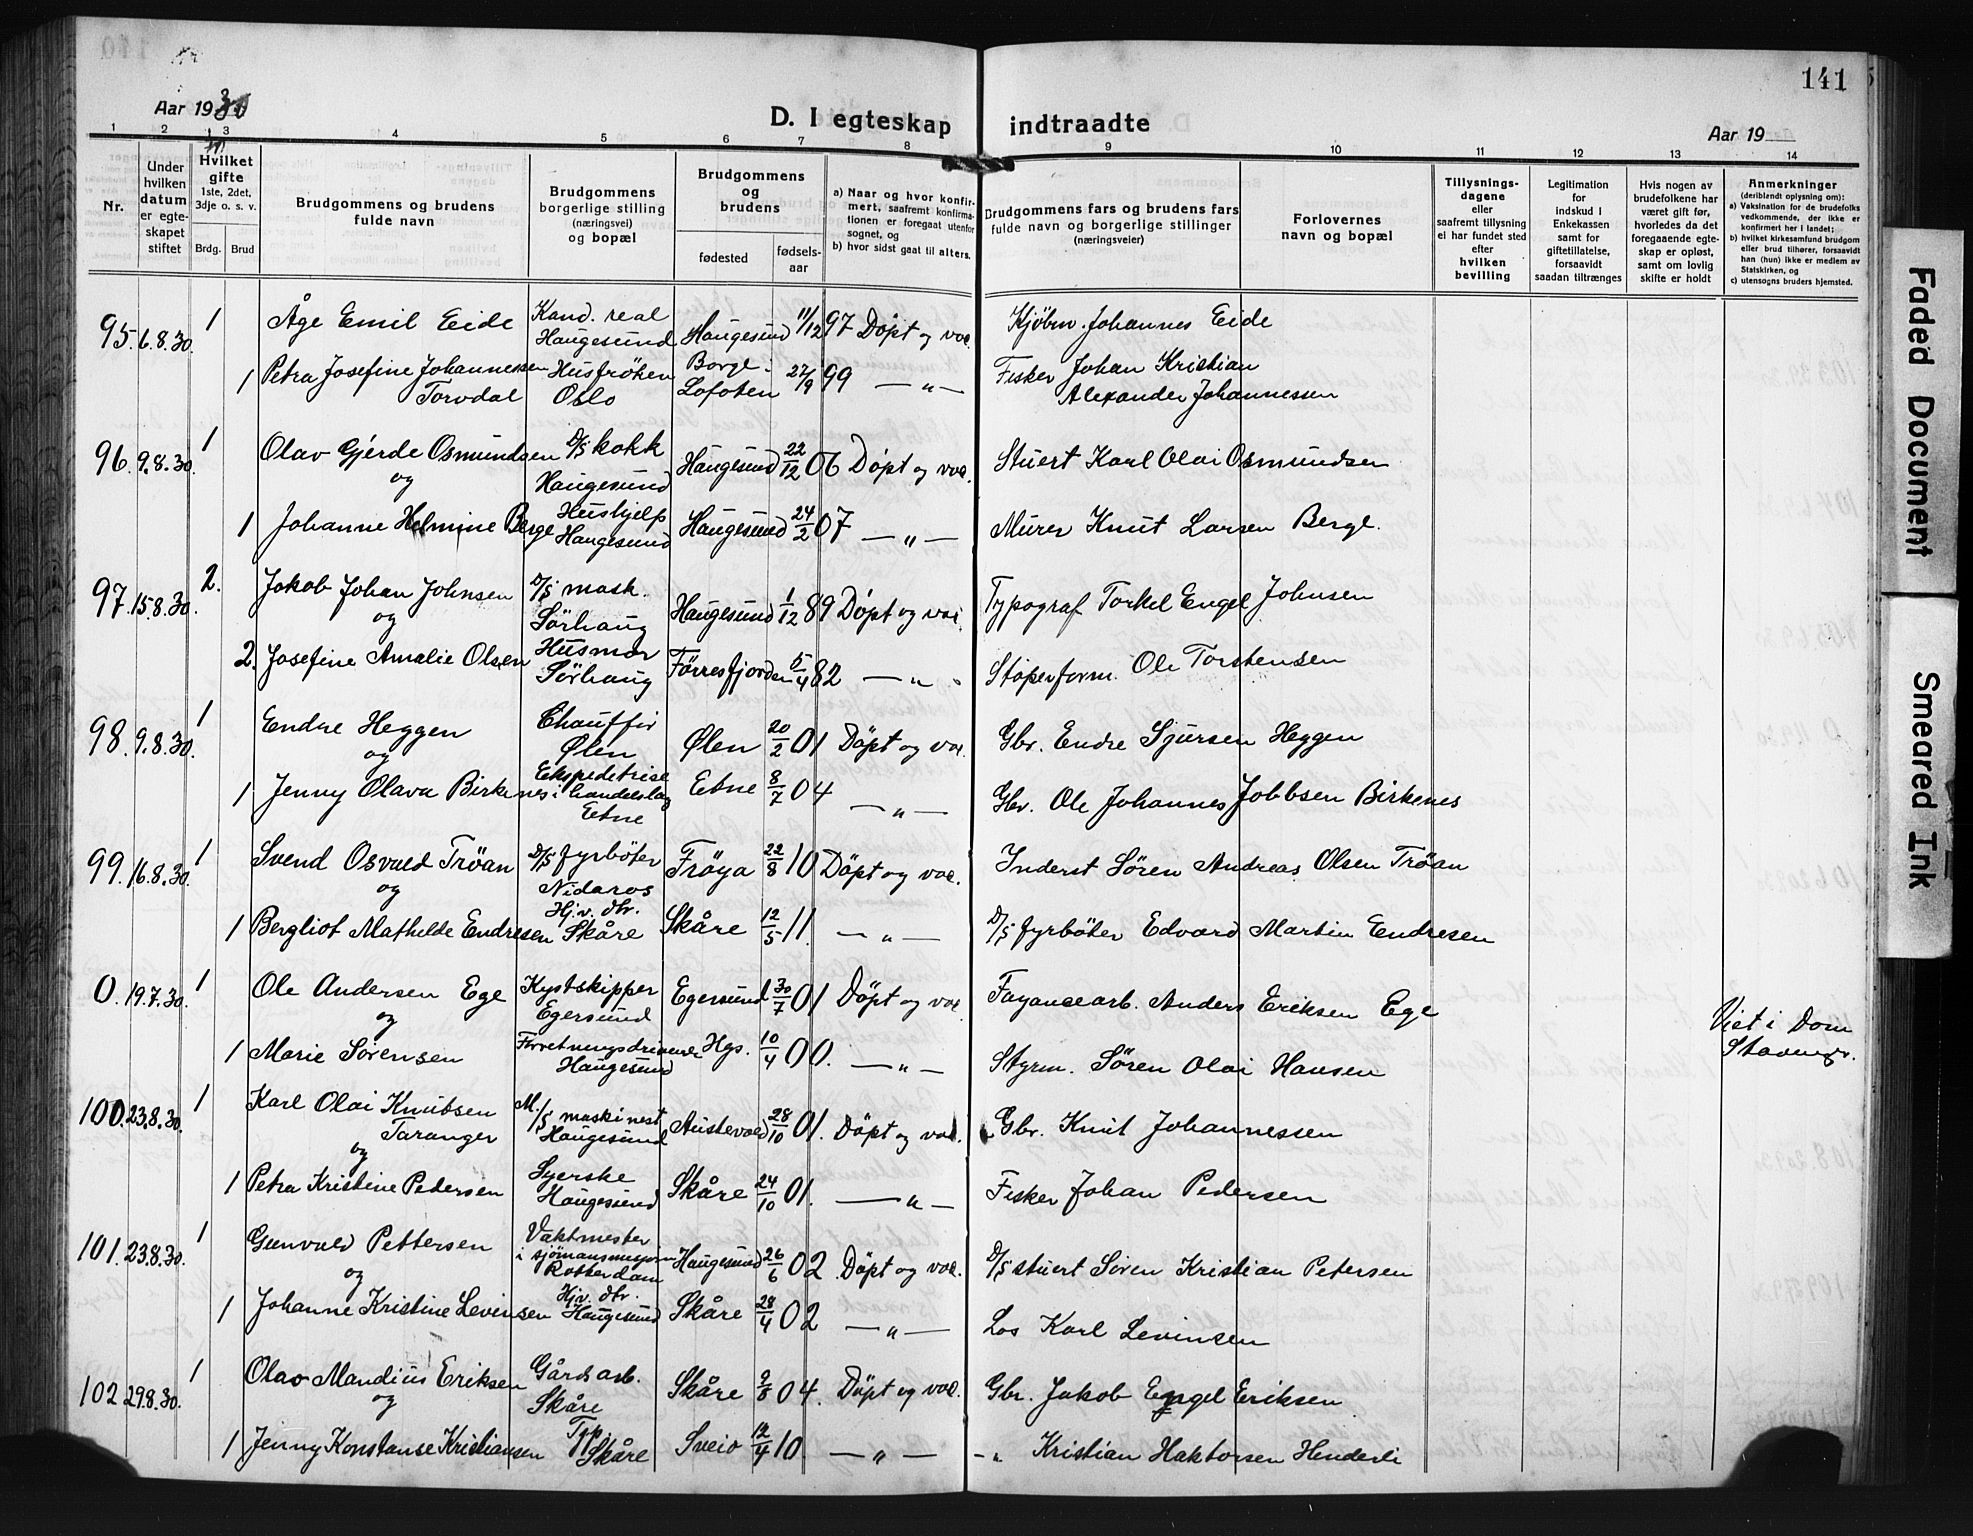 141
Aar 1930
D. I egteskap indtraadte
Aar 19
1 2 3 4 5 6 7 8 9 10 11 12 13 14
Nr.
Under hvilken datum er egteskapet stiftet
Hvilket gifte
1ste, 2det, 3dje o. s. v.
Brdg. Brud
Brudgommens og brudens fulde navn
Brudgommens borgerlige stilling (næringsvei) og bopæl
Brudgommens og brudens
fødested
fødsels-aar
a) Naar og hvor konfirmert, saafremt konfirmationen er foregaat utenfor sognet, og
b) hvor sidst gaat til alters.
Brudgommens fars og brudens fars fulde navn og borgerlige stillinger (næringsveier)
Forlovernes navn og bopæl
Tillysnings-dagene eller saafremt tillysning ei har fundet sted efter hvilken bevilling
Legitimation for indskud i Enkekassen samt for giftetillatelse, forsaavidt saadan tiltrænges
Hvis nogen av brudefolkene har været gift før, hvorledes da det foregaaende egteskap er opløst, samt om lovlig skifte er holdt
Anmerkninger
(deriblandt oplysning om):
a) Vaksination for de brudefolks vedkommende, der ikke er konfirmert her i landet;
b) hvilket kirkesamfund brudgom eller brud tilhører, forsaavidt han (hun) ikke er medlem av Statskirken, og
c) utensogns bruders hjemsted.
95. 6.8.30. 1 Åge Emil Eide Kand. real Haugesund Haugesund 11/12 97 Döpt og vac. Kjöbm. Johannes Eide
1 Petra Josefine Johannessen Torvdal Husfröken Oslo Borge i Lofoten 27/9 99 — „ — Fisker Johan Kristian Alexander Johannessen
96. 9.8.30. 1 Olav Gjerde Osmundsen og D/S kokk Haugesund Haugesund 22/12 06 Döpt og vac. Stuert Karl Olai Osmundsen
1 Johanne Helmine Berge Hushjelp Haugesund Haugesund 24/2 07 — „ — Murer Knut Larsen Berge.
97. 15.8.30. 2. Jakob Johan Johnsen og D/S mask. Sörhaug Haugesund 1/12 89 Döpt og vac. Typograf Torkel Engel Johnsen
2. Josefine Amalie Olsen Husmor Sörhaug Förresfjorden 5/4 82 — „ - Stöperform. Ole Torstensen
98. 9.8.30. 1 Endre Heggen og Chauffør Ølen Ølen 20/2 01 Döpt og vac. Gbr. Endre Sjursen Heggen
1 Jenny Olava Birkenes Ekspeditrise i handelslag Etne Etne 8/7 04 — „ — Gbr. Ole Johannes Jobbsen Birkenes
99. 16.8.30. 1 Svend Osvald Tröan og D/S fyrböter Nidaros Fröya 22/8 10 Döpt og vac. Inderst Sören Andreas Olsen Tröan
1 Bergliot Mathilde Endresen Hj.v. dtr. Skåre Skåre 12/5 11. — „ — D/S fyrböter Edvard Martin Endresen
0. 19.7.30. 1 Ole Andersen Ege og Kystskipper Egersund Egersund 30/7 01 Döpt og vac. Fayancearb. Anders Eriksen Ege Viet i Dom Stavanger.
1 Marie Sörensen Forretningsdrivende Haugesund Hgs. 10/4 00. — „ — Styrm. Sören Olai Hansen
100. 23.8.30. 1 Karl Olai Knutsen Taranger og M/S maskinest Haugesund Austevold 28/10 01. Döpt og vac. Gbr. Knut Johannessen
1 Petra Kristine Pedersen Syerske Haugesund Skåre 24/10 01. — „ — Fisker Johan Pedersen
101. 23.8.30. 1 Gunvald Pettersen og Vaktmester i sjömansmisjon Rotterdam Haugesund 26/6 02 Döpt og vac. D/S stuert Sören Kristian Petersen
1 Johanne Kristine Levinsen Hj.v. dtr. Haugesund Skåre 28/4 02 — „ — Los Karl Levinsen
102 29.8.30. 1 Olav Mandius Eriksen og Gårdsarb. Skåre Skåre 9/8 04. Döpt og vac. Gbr. Jakob Engel Eriksen
1 Jenny Konstanse Kristiansen Typ. Skåre Sveio 12/4 10. — „ — - „ Kristian Haktorsen Henderli
Faded Document
Smeared Ink